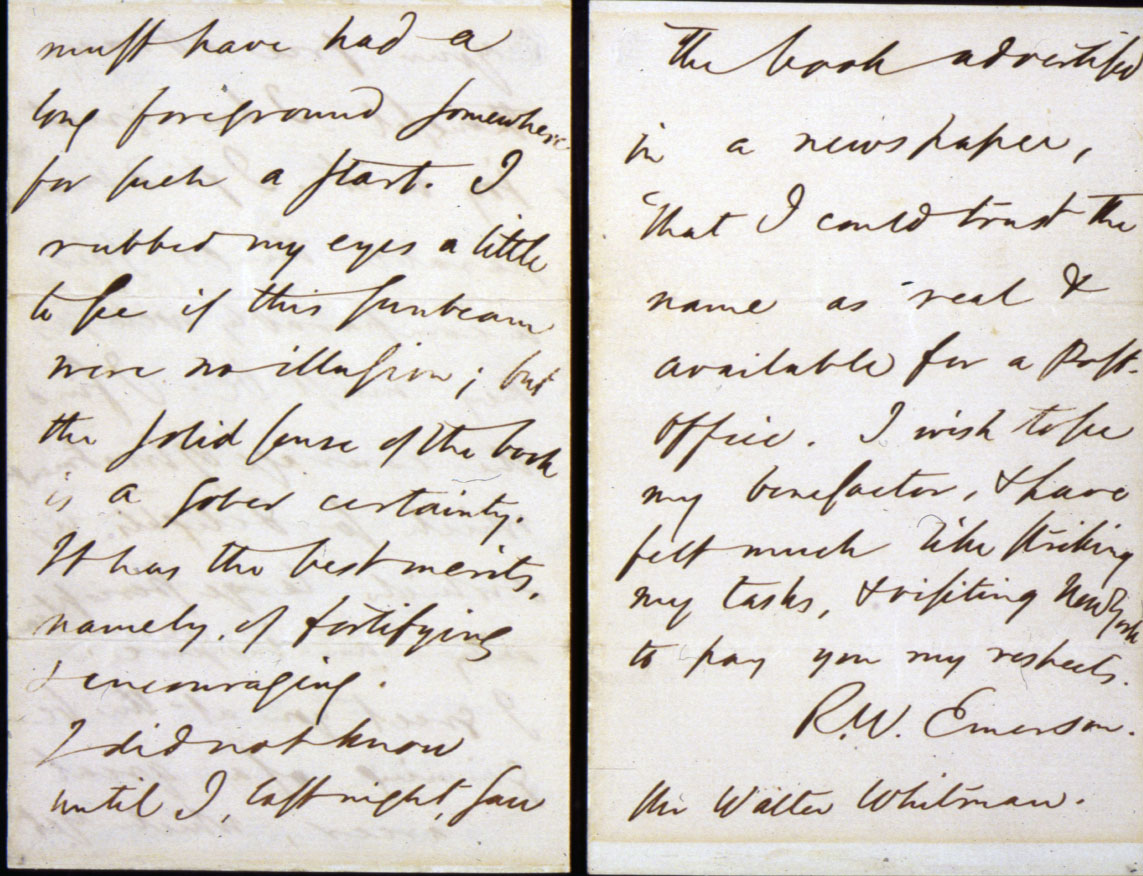 must have had a
long foreground somewhere
for such a start. I
rubbed my eyes a little
to see if this sunbeam
were no illusion; but
the solid sense of the book
is a sober certainty.
It has the best merits,
namely, of fortifying
& encouraging.
I did not know
until I, last night, saw
the book advertised
in a newspaper,
that I could trust the
name as real &
available for a Post-
office. I wish to see
my benefactor, & have
felt much like striking
my tasks, & visiting New York
to pay you my respects.
R.W. Emerson.
Mr Walter Whitman.